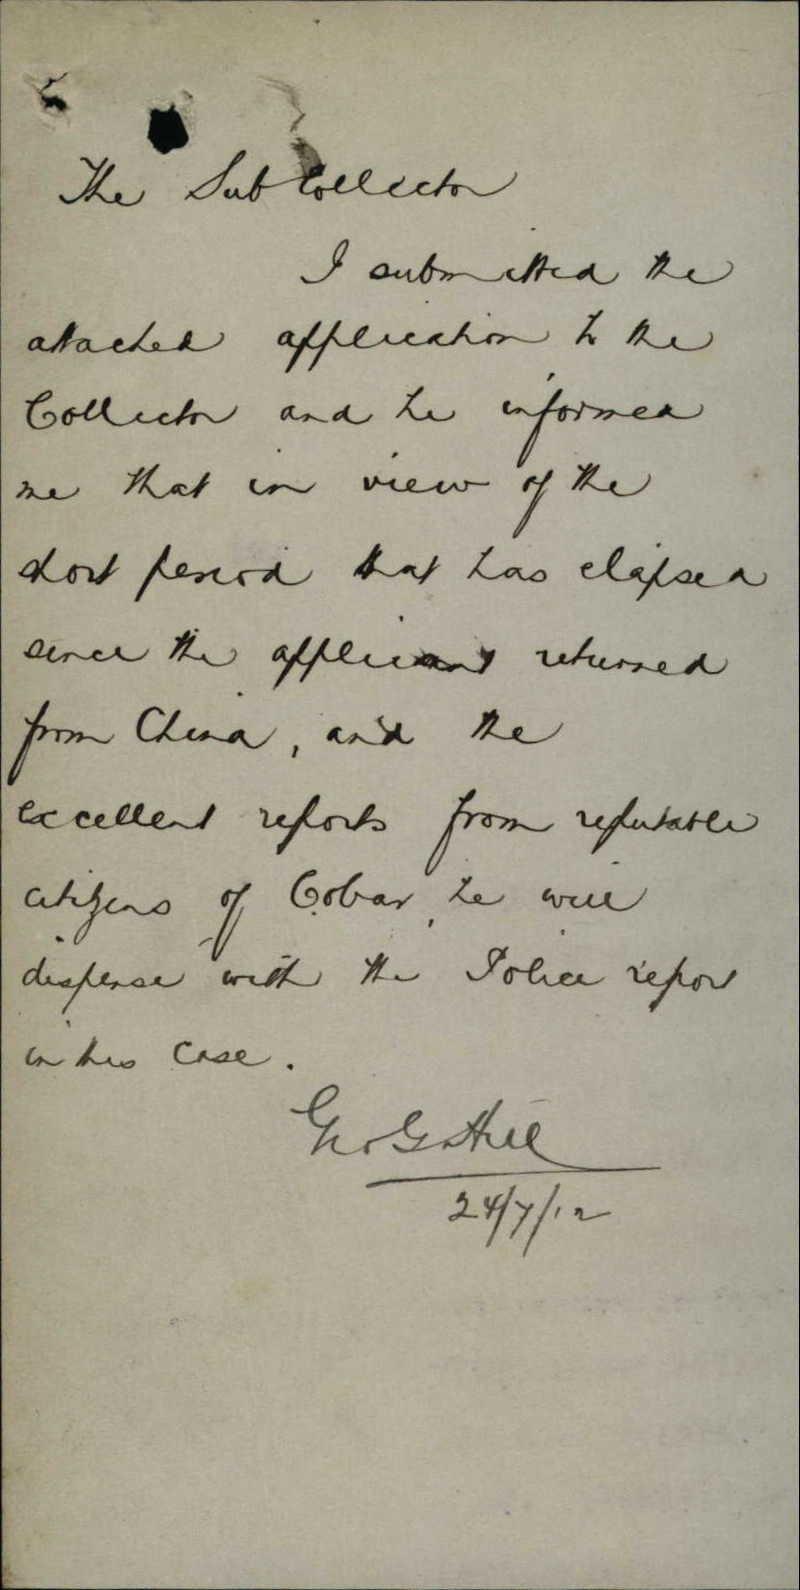 The Sub Collector
I submitted the
attached application to the
Collector and he informed
me that in view of the
short period that has elapsed
since the applicant returned
from China, and the
excellent reports from reputable
citizens of Cobar, he will
dispense with the Police report
in this case.
Geo G Hill
24/7/12